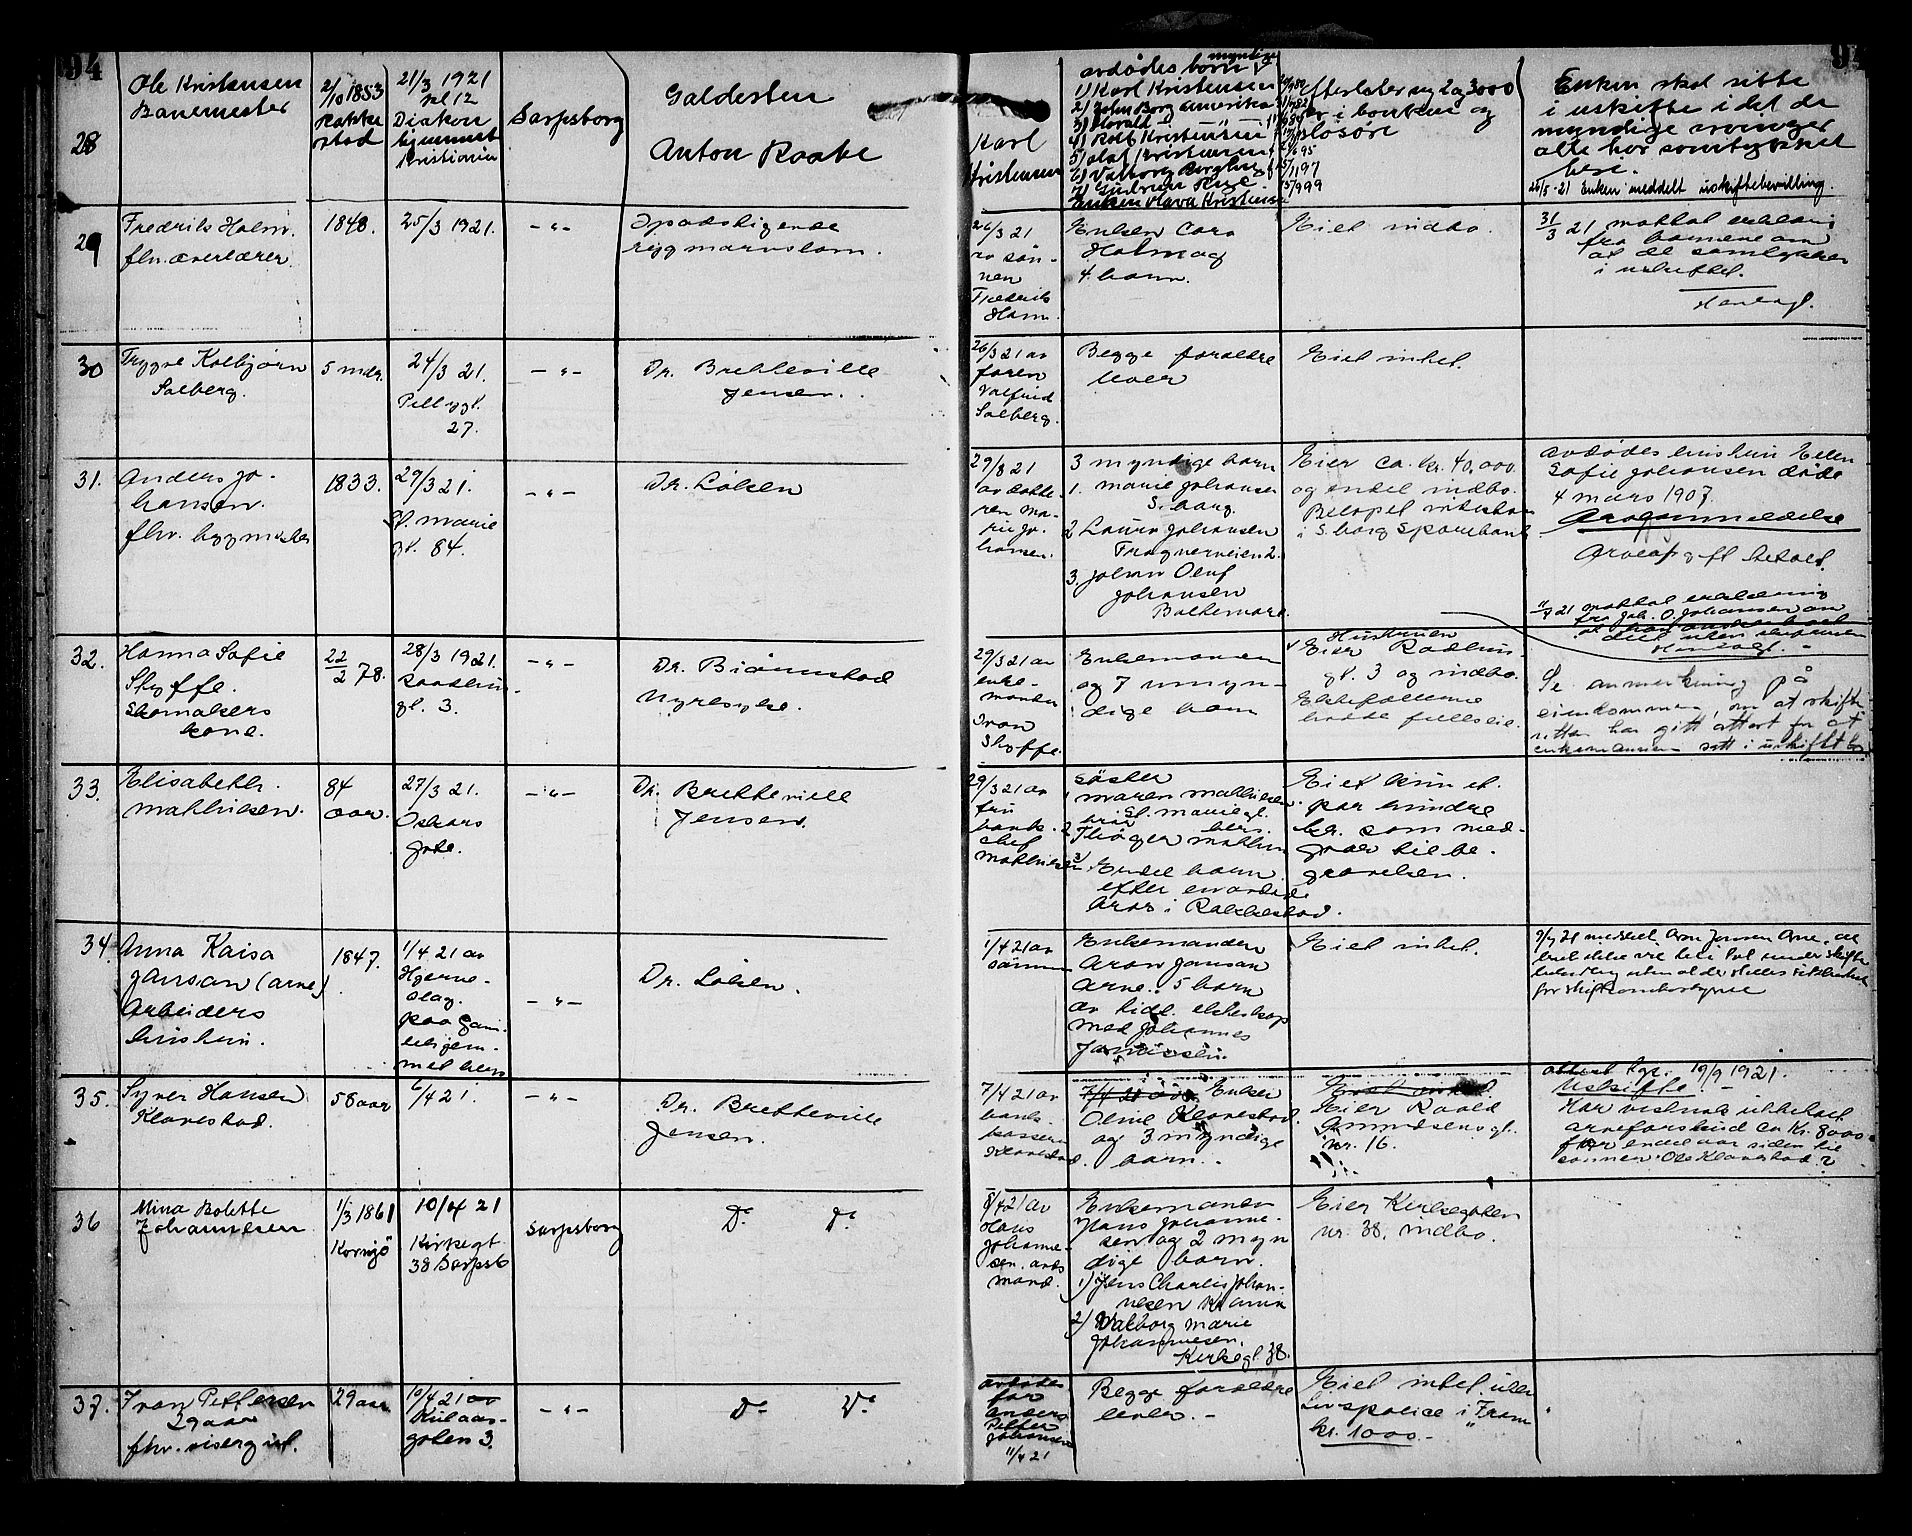 94
94
28
Ole Kristensen
Banemester
2/10 1853
Rakke
stad
21/3 1921
kl 12
Diakon
hjemmet
Kristiania
Sarpsborg
Galdesten
Anton Raabe
Karl
Kristensen
avdødes børn myndige
1) Karl Kristensen
2) John Borg Amerika
3) Harald
4) Rolf Kristensen
5) Olaf Kristensen
6) Valborg Borghy
7) Gudrun
Enken Kristensen
Efterlater sig 2 a 3000
kr i banken og
løsøre
Enken skal sitte
i uskifte i det de
myndige arvinger
alle har samtykket
heri.
26/5-21 Enken meddelt uskiftebevilling.
29
Fredrik Holm.
fhv. overlærer.
1848.
25/3 1921.
- " -
Opadstigende
rygmarvslam.
26/3 21
av søn-
nen
Fredrik
Holm.
Enken Cara
Holm og
4 barn.
Eiet indbo.
31/3 21 mottat erklæring
fra barnene om
at de samtykker
i uskiftet.
30
Trygve Kolbjørn
Solberg.
5 mdr.
24/3 21.
Pellygt.
27.
- " -
Dr. Bretteville
Jensen.
26/3 21 av
faren
Valfrid
Solberg.
Begge forældre
lever
Eiet intet.
31.
Anders Jo-
hansen.
fhv. bygmester
1833.
27/3 21.
St. Marie
gt. 84.
- " -
Dr. Løken
29/3 21
av datte-
ren Ma-
rie Jo-
hansen.
3 myndige barn
1. Marie Johansen
S. borg.
2 Laura Johansen
Frognerveien 2.
3. Johan Oluf
Johansen
Baltemore.
Eier ca. kr. 40,000.
og endel indbo.
Beløpet indestaar
i S. borg Sparebank
avdødes hustru Ellen
Sofie Johansen døde
4 mars 1907.
Arveavgift betalt.
21 mottat erklæring
fra Joh. O. Johansen om
32.
Hanna Sofie
Skyffe.
Skomakers
kone.
22/2 78.
28/3 1921.
Raadhus-
gt. 3.
- " -
Dr. Bjørnstad
Nyresyke.
29/3 21 av
enke-
manden
Ivan
Skyffe.
Enkemannen
og 7 umyn-
dige barn
Hustruen
Eier Raadhus-
gt. 3 og indbo.
Ektefollene
hadde fælleseie.
Se anmerkning på
eiendommen, om at skifte-
retten har gitt attest for at
enkemannen satt i uskiftet bo
33.
Elisabeth
Mathiesen.
84
aar.
27/3 21.
Oskars
gate.
- " -
Dr. Bretteville
Jensen.
29/3 21 av
fru
bank-
chef
Mathiesen
søster
1 Maren Mathiesen
St. Marie gt.
2 Thøger Mathiesen
3/ Endel barn
efter en avdød
bror i Rakkestad.
Eiet kun et
par hundre
kr. som med-
gaar til be-
gravelsen.
34.
Anna Kaisa
Janson (Arne)
Arbeiders
hustru.
1847.
1/4 21 av
Hjerne-
slag.
paa Gam-
lehjem-
met her
- " -
Dr. Løken.
1/4 21 av
sønnen
Enkemanden
Aron Janson
Arne. 5 barn
av tidl. ekteskap
med Johannes
Eiet intet.
35.
Syver Hansen
Klavestad.
58 aar
6/4 21.
- " -
Dr. Bretteville
Jensen.
7/4 21 av
bank-
kasserer
Klavestad.
7/4 21 av Enken
Oline Klavestad.
og 3 myndige
barn.
Eiet intet.
Eier Roald
Amundsens gt.
nr. 16.
attest 19/9 1921.
Uskifte.
Har utbetalt
arveforskud ca kr. 8000
for endel aar siden til
sønnen Ole Klavestad?
36
Mina Bolette
Johannesen
1/3 1861
Kornsjø
10/4 21
Kirkegt
38 Sarpsb
Sarpsborg
Do Do
8/4 21 av
Hans
Johanne-
sen. arbs
mand.
Enkemanden
Hans Johanne-
sen og 2 myn
dige barn.
1) Jens Charles Johan-
nesen
2) Valborg Marie
Johannesen.
Kirkegt. 38.
Eier Kirkegaten
nr. 38, indbo.
37.
Ivan Pettersen
29 aar
fhv. visergut.
29 aar
10/4 21 av
gaten 3.
- " -
Do Do
avdødes
far
Anders
Petter
Johansen
11/4 21
Begge forældre
lever. -
Eiet intet uten
Livspolice i "Fram"
kr. 1000.-